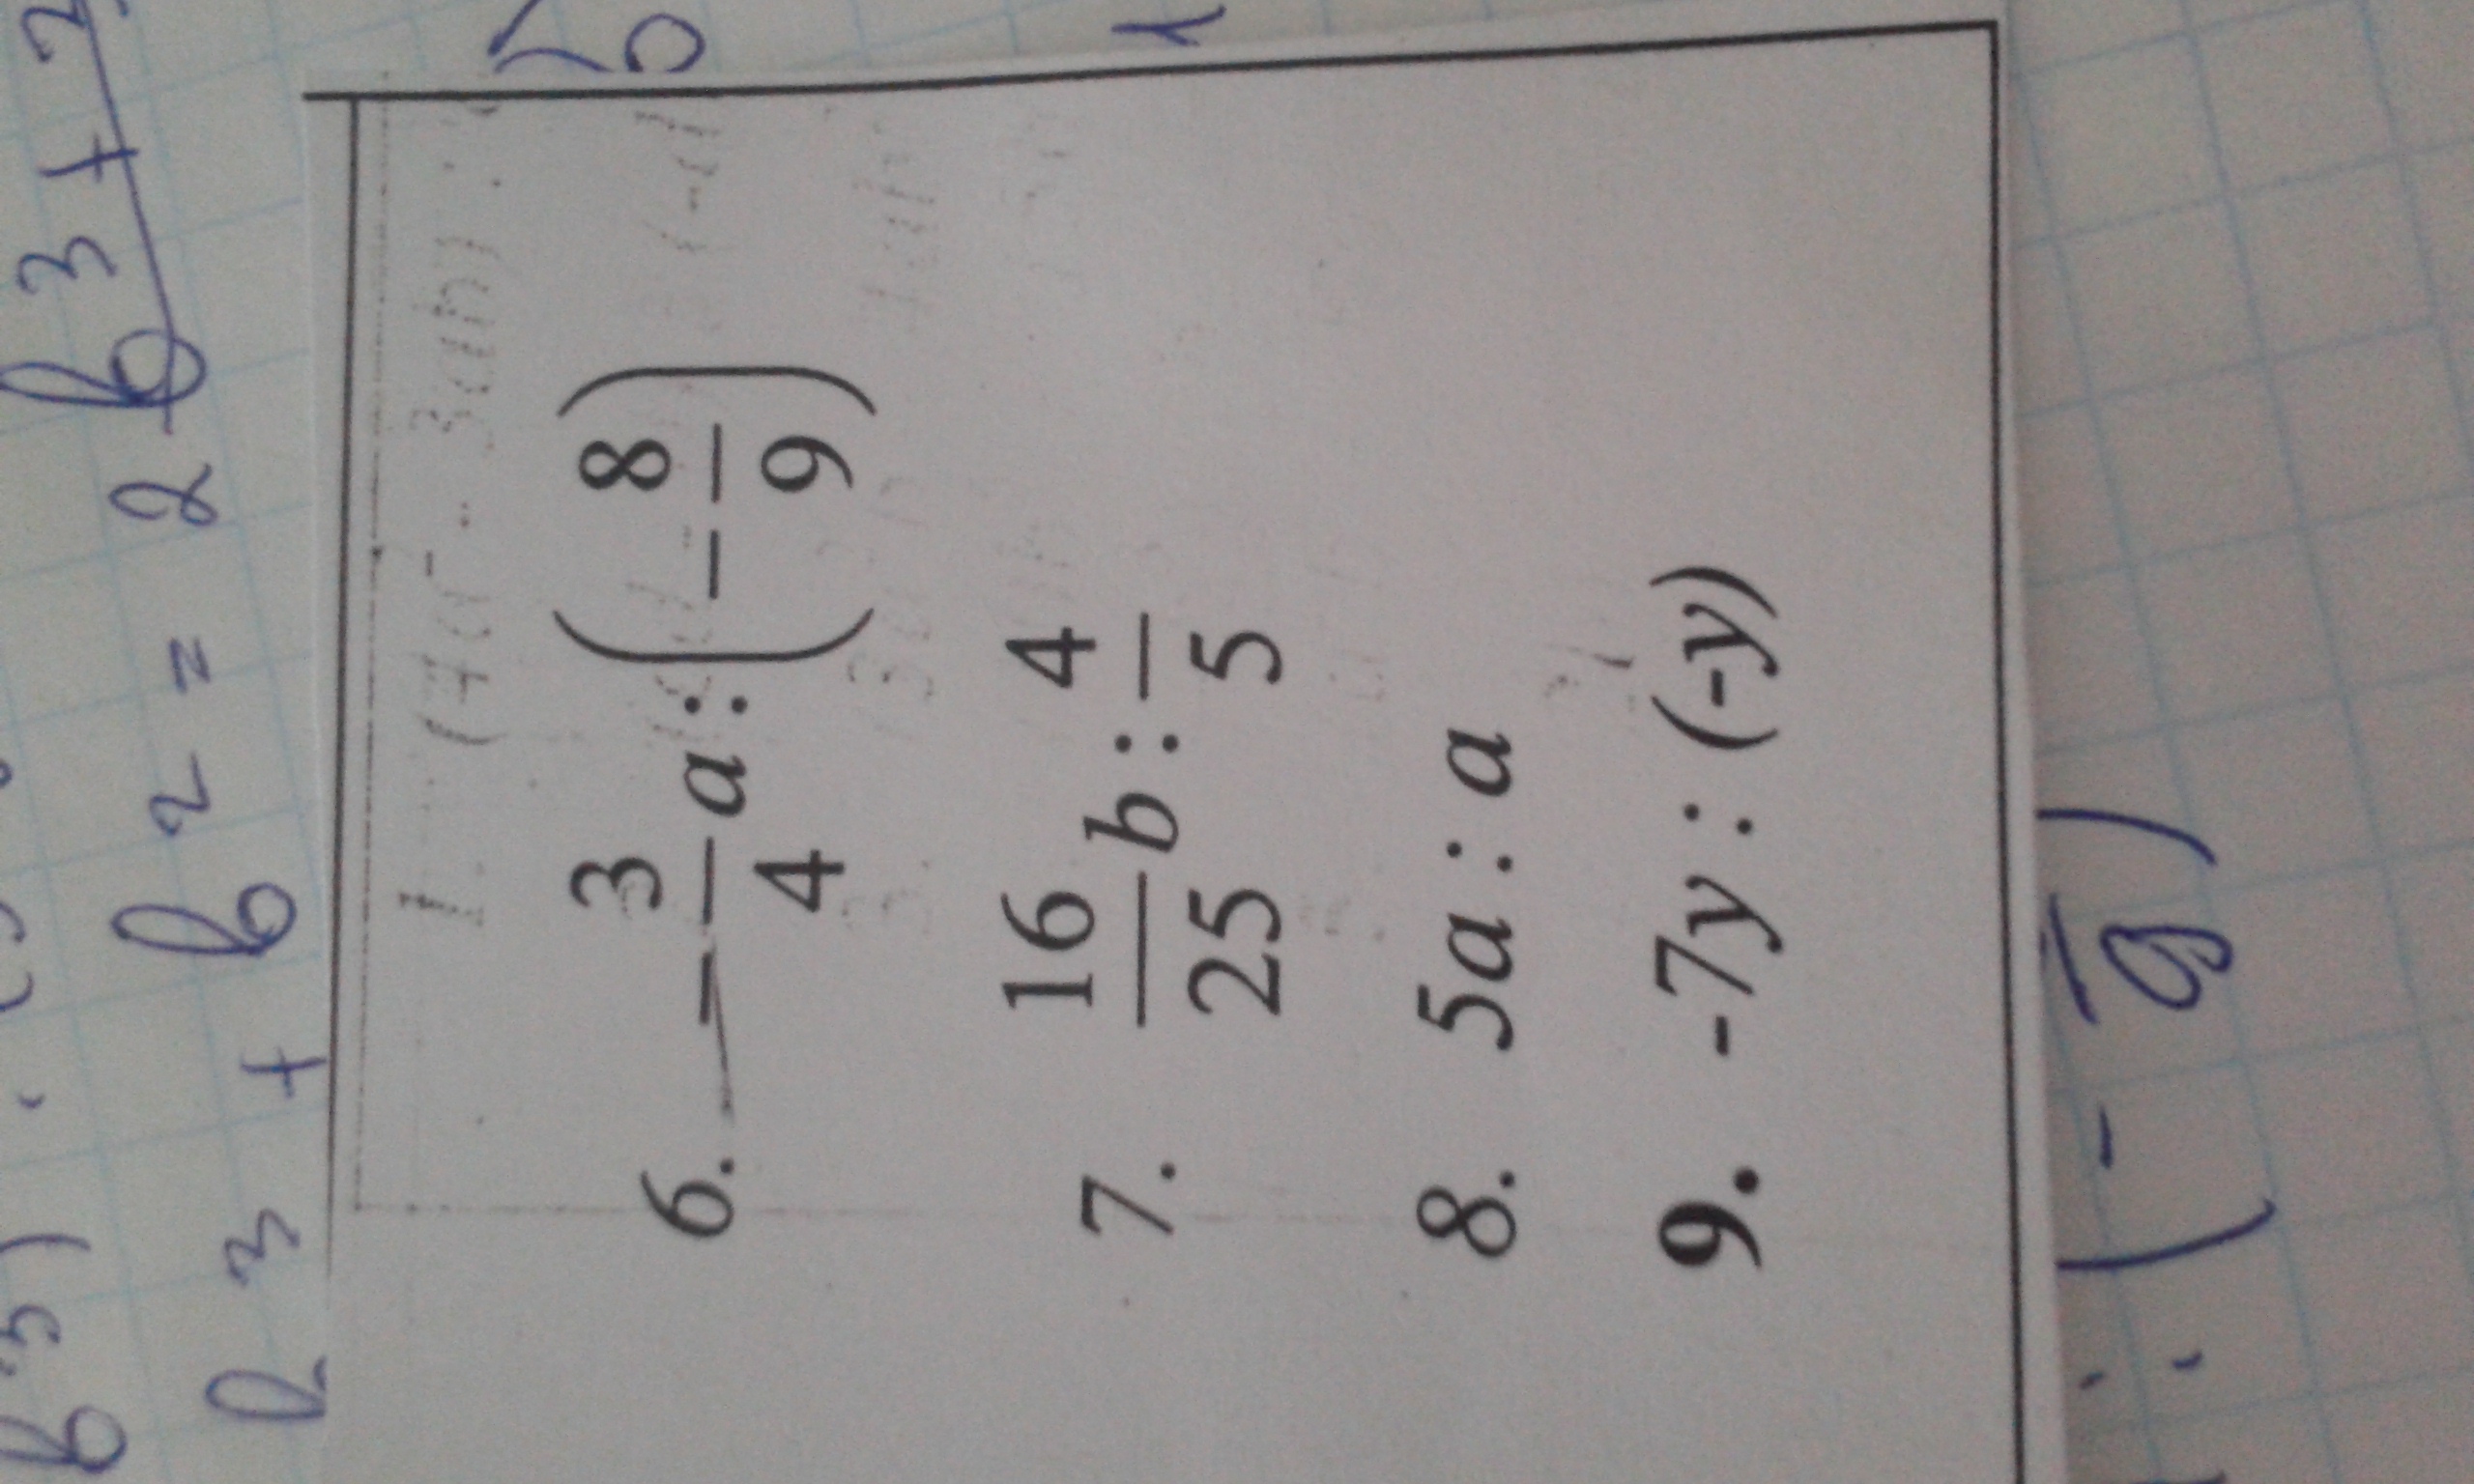 b³ + 2
b³ + b² = 2
6. -3/4 a : (-8/9)
7. 16/25 b : 4/5
8. 5a : a
9. -7y : (-y)
: (- 9)